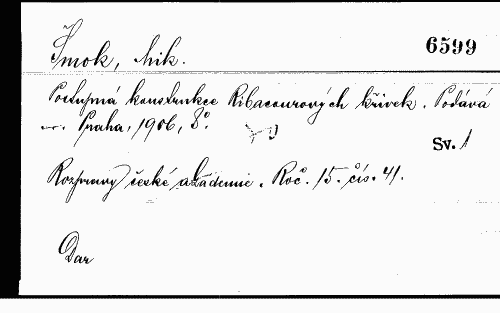 Šmok, Mik.
6599
Postupná konstrukce Ribacourových křivek. Podává
Praha, 1906, 8°.
Sv. 1
Rozpravy české akademie. Roč. 15. čís. 41.
Dar